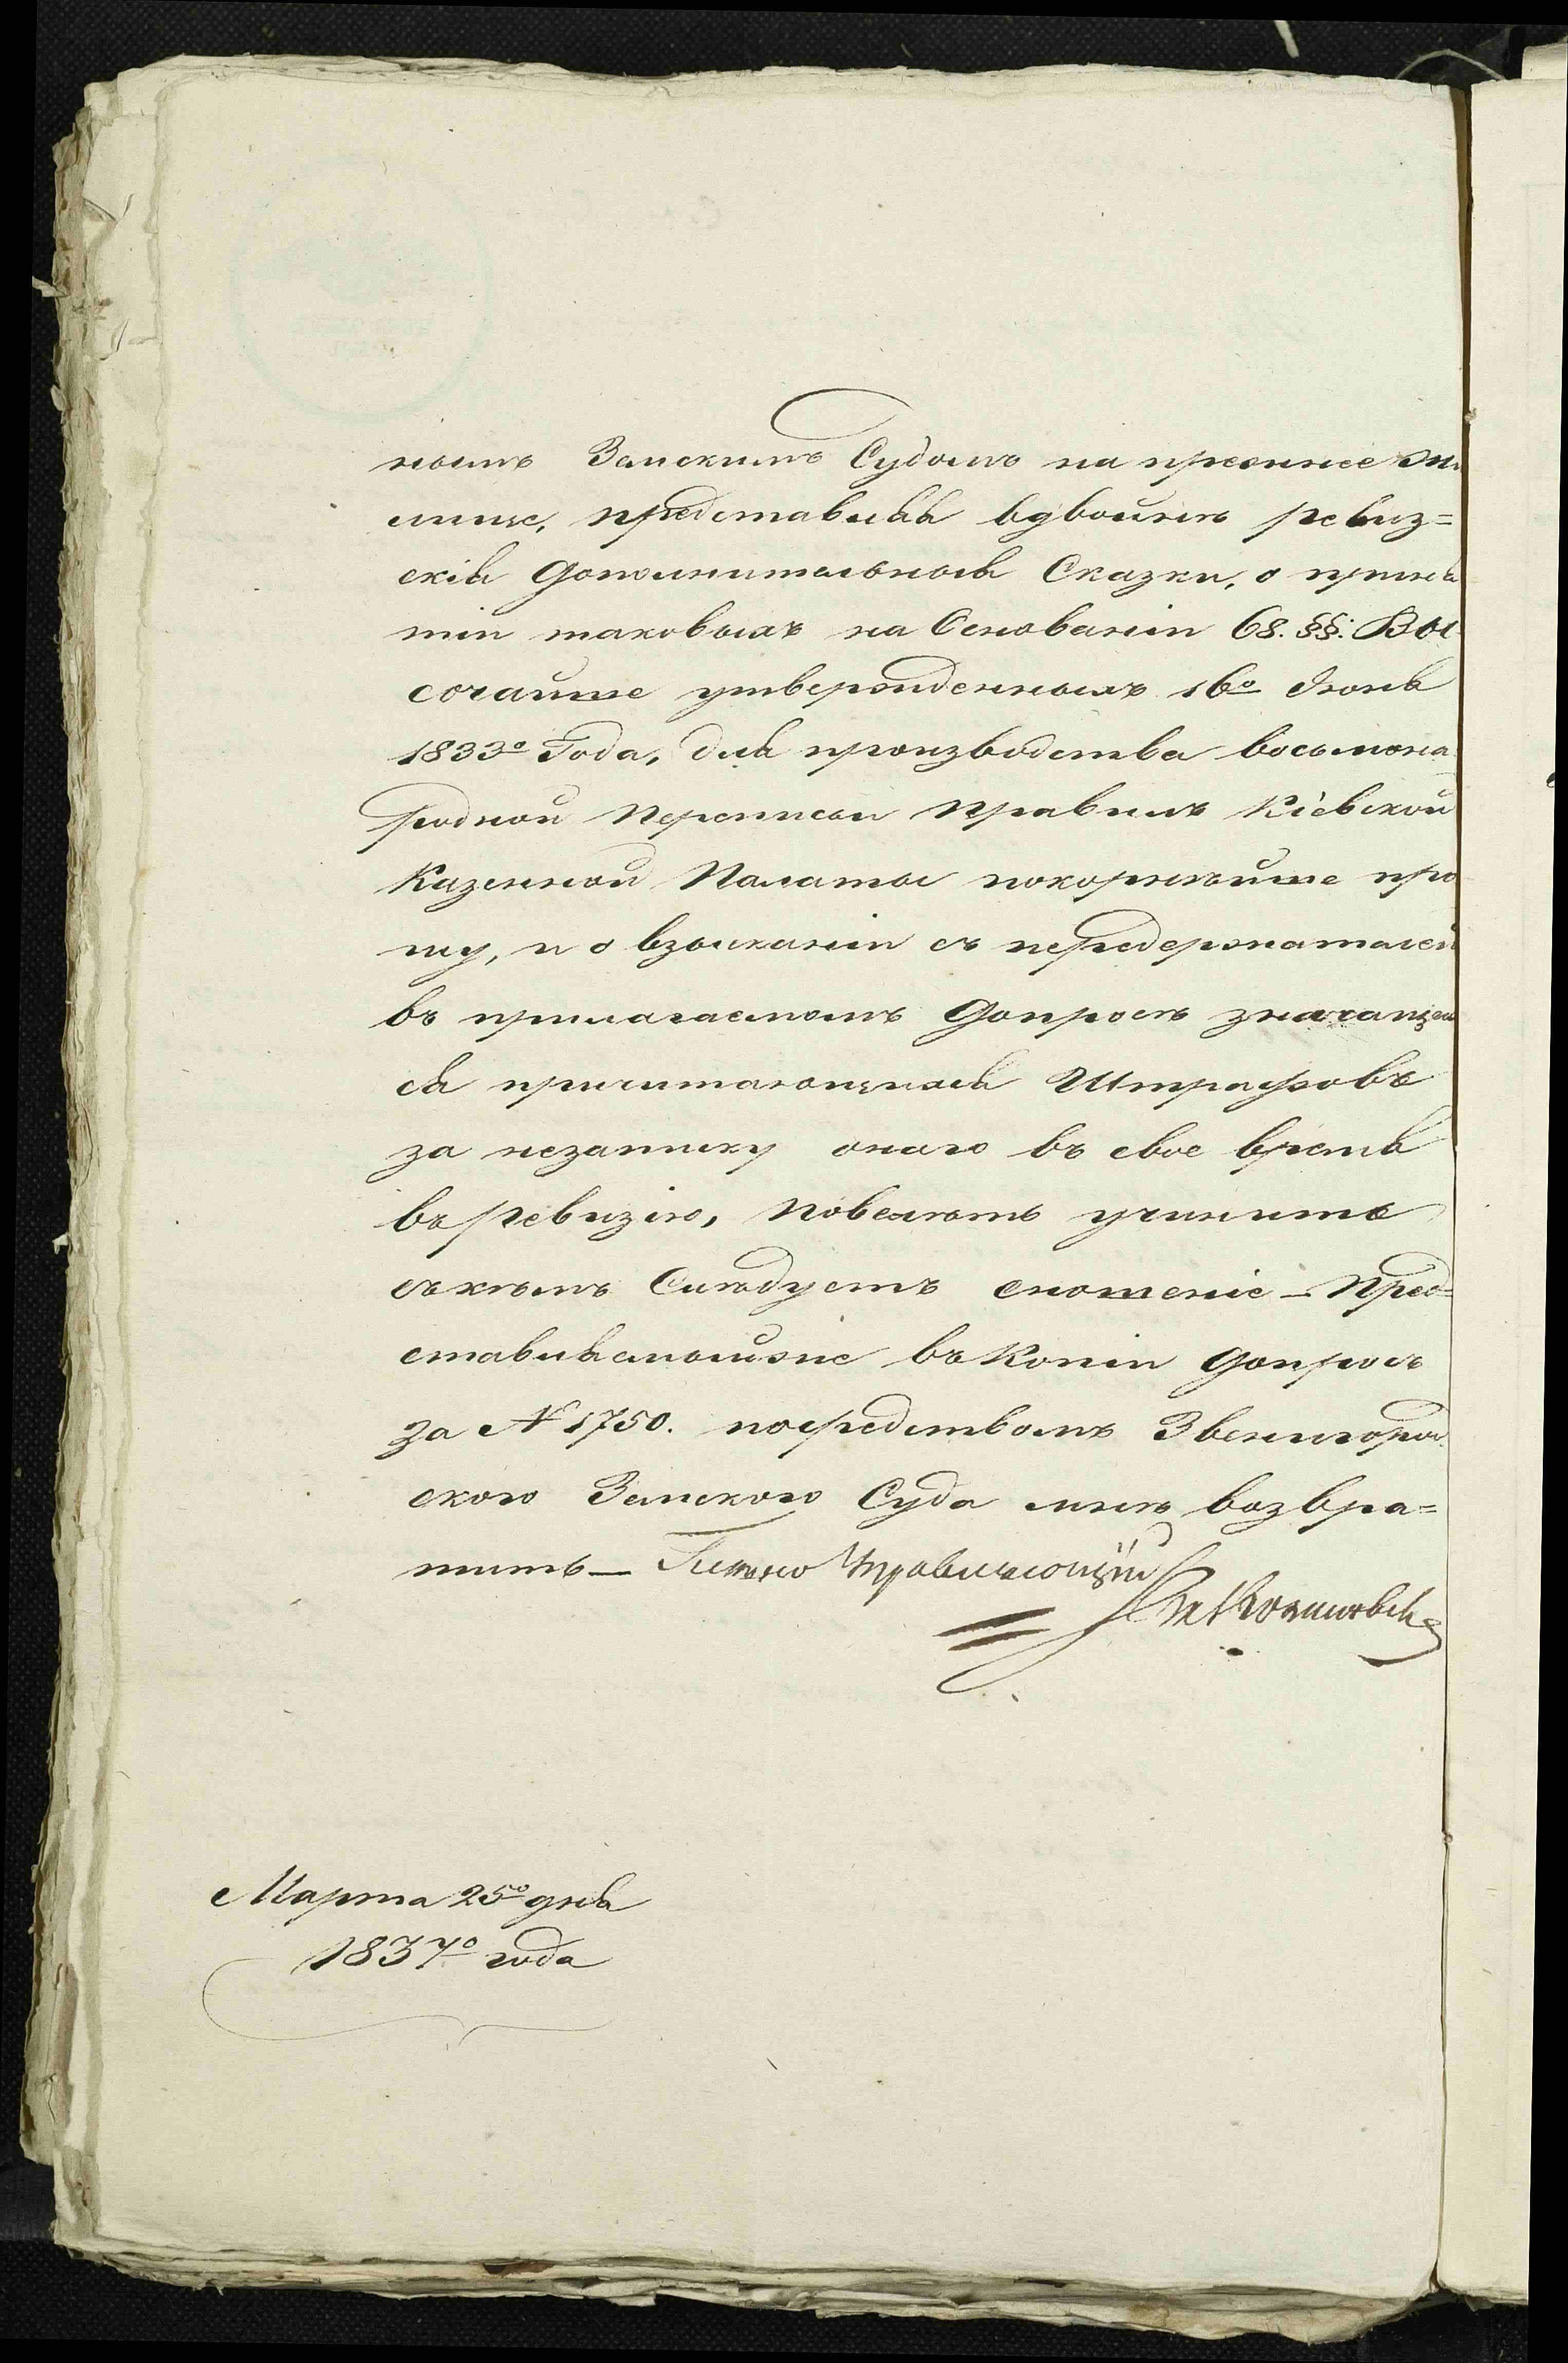 нымъ Земскимъ Судомъ на прежнее жи
лище, представляя вдвойнѣ ревиз=
скія дополнительныя Сказки, о приня
тіи таковыхъ на Основаніи 68. §§. Вы
сочайше утвержденныхъ 16º Іюня
1833º Года, для производства восьмона
родной Переписи Правилъ Кіевской
Казенной Палаты покорнѣйше про
шу, и о взысканіи съ передержателей
въ прилагаемомъ допросѣ значащих
ся причитающихся Штрафовъ
за незаписку онаго въ свое время
въ ревизію, Повелѣть учинить
съ кѣмъ Слѣдуетъ сношеніе — Пред=
ставляемыйже въ Копіи допросъ
за № 1750. посредствомъ Звенигород
скаго Земскаго Суда мнѣ возвра=
тить — Управляющій
Марта 25º дня
1837º года